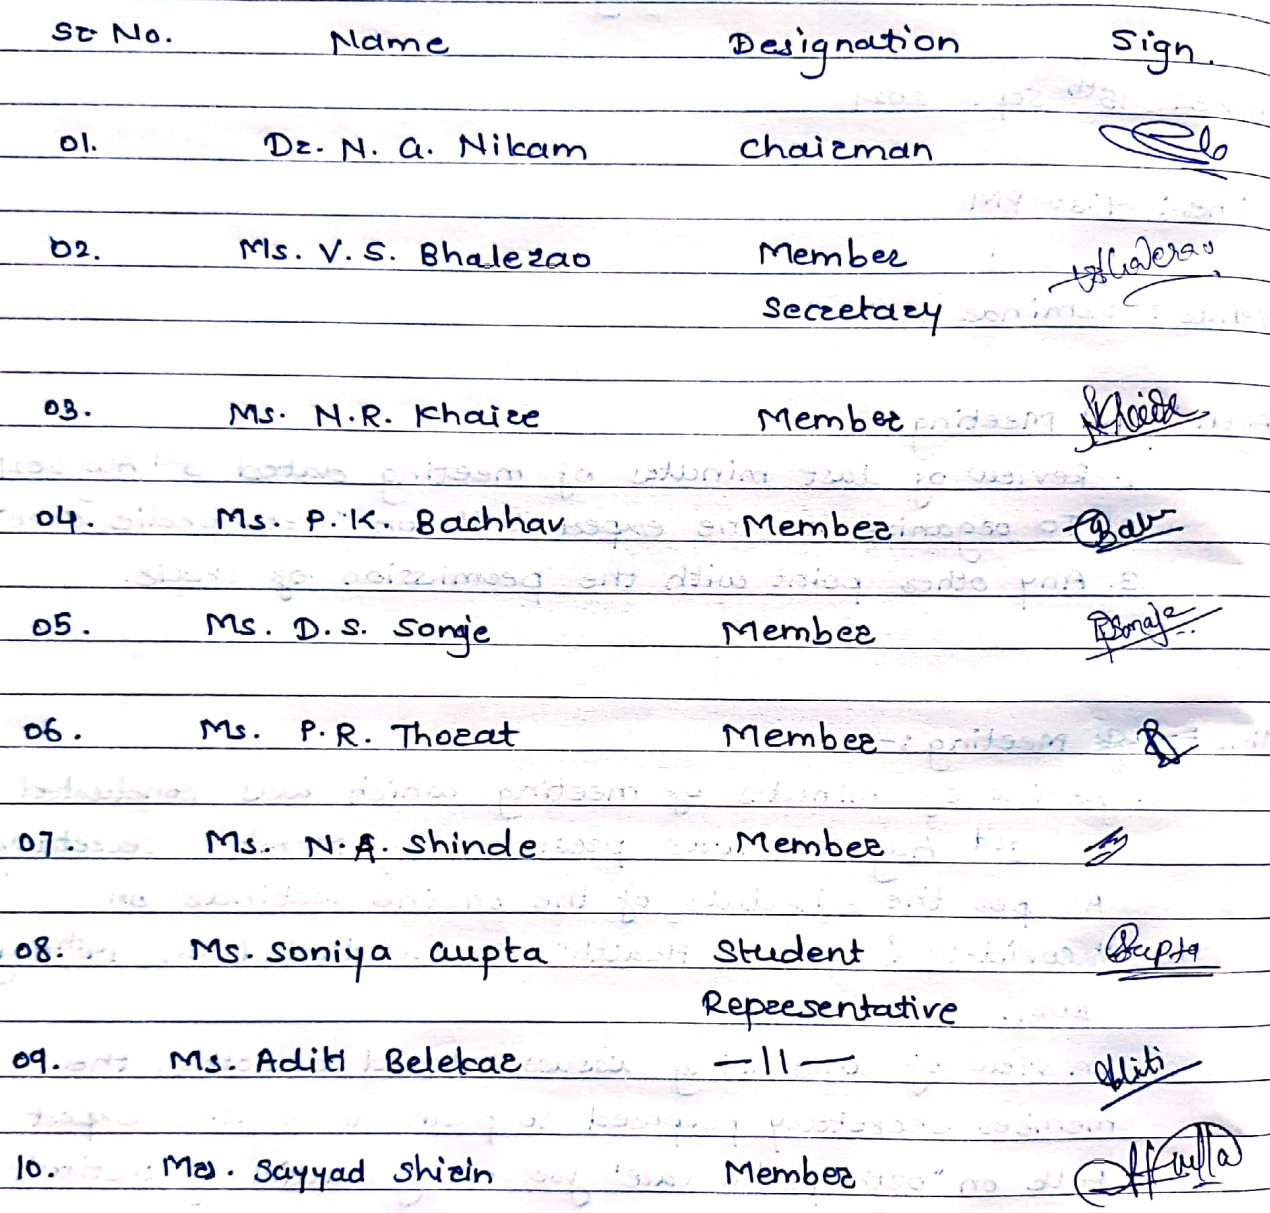 Sr No. Name Designation Sign.
01. Dr. N. A. Nikam Chairman
02. Ms. V. S. Bhalerao Member Bhalerao
Secretary
03. Ms. N.R. Khaire Member Khaire
04. Ms. P.K. Bachhav Member
05. Ms. D.S. Sonje Member
06. Ms. P.R. Thorat Member
07. Ms. N.A. Shinde Member
08. Ms. Soniya Gupta Student Gupta
Representative
09. Ms. Aditi Belekar —11— Aditi
10. Mrs. Sayyad Shirin Member